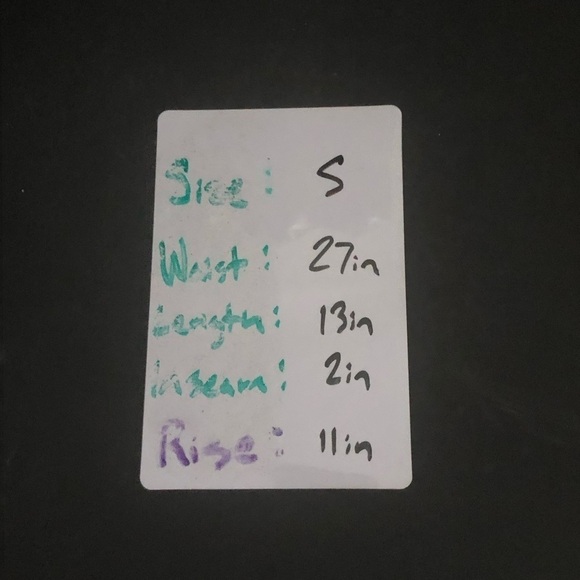 Size: S
Waist: 27in
Length: 13in
Inseam: 2in
Rise: 11in